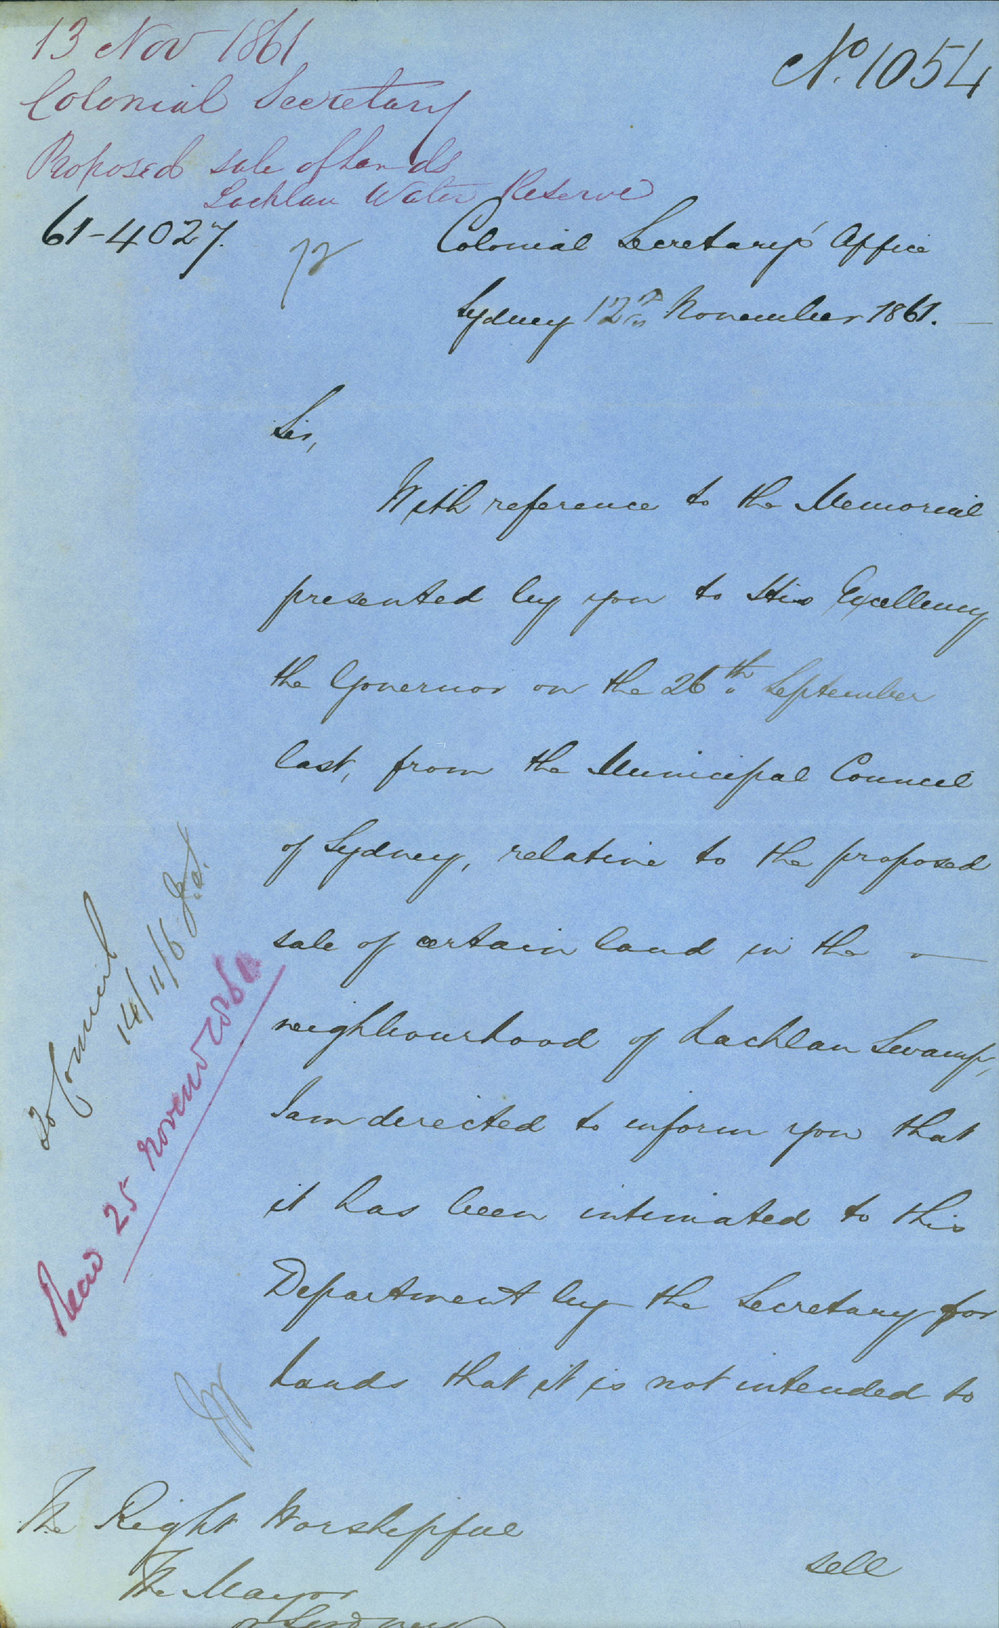 13 Nov 1861
Colonial Secretary
Proposed sale of Lands
Lachlan Water Reserve
No. 1054
61-4027.
Colonial Secretary's Office
Sydney 12th November 1861.
Sir,
With reference to the Memorial
presented by you to His Excellency
the Governor on the 26th September
last, from the Municipal Council
of Sydney, relative to the proposed
sale of certain land in the
neighbourhood of Lachlan Swamp,
I am directed to inform you that
it has been intimated to this
Department by the Secretary for
Lands that it is not intended to
sell
To Council
14/11/6
Read 25 November 61
The Right Worshipful
The Mayor
of Sydney